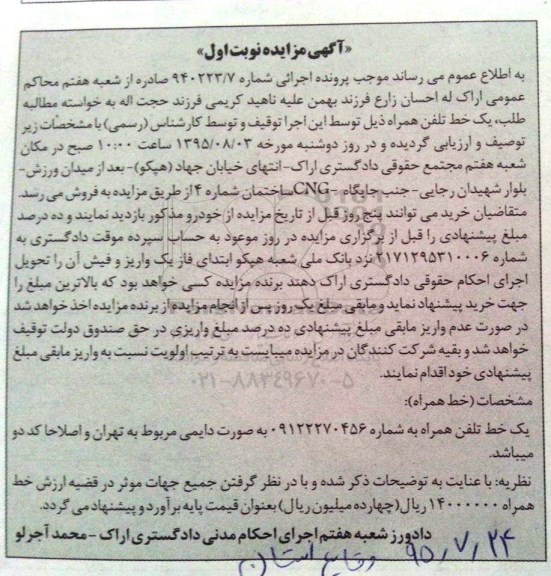 «آگهی مزایده نوبت اول»
به اطلاع عموم می رساند موجب پرونده اجرائی شماره ۹۴۰۲۲۳/۷ صادره از شعبه هفتم محاکم
عمومی اراک له احسان زارع فرزند بهمن علیه ناهید کریمی فرزند حجت اله به خواسته مطالبه
طلب، یک خط تلفن همراه ذیل توسط این اجرا توقیف و توسط کارشناس (رسمی) با مشخصات زیر
توصیف و ارزیابی گردیده و در روز دوشنبه مورخه ۱۳۹۵/۰۸/۰۳ ساعت ۱۰:۰۰ صبح در مکان
شعبه هفتم مجتمع حقوقی دادگستری اراک-انتهای خیابان جهاد (هپکو)- بعد از میدان ورزش-
بلوار شهیدان رجایی- جنب جایگاه CNG-ساختمان شماره ۴ از طریق مزایده به فروش می رسد.
متقاضیان خرید می توانند پنج روز قبل از تاریخ مزایده از خودرو مذکور بازدید نمایند و ده درصد
مبلغ پیشنهادی را قبل از برگزاری مزایده در روز موعود به حساب سپرده موقت دادگستری به
شماره ۲۱۷۱۲۹۵۳۱۰۰۰۶ نزد بانک ملی شعبه هپکو ابتدای فاز یک واریز و فیش آن را تحویل
اجرای احکام حقوقی دادگستری اراک دهند برنده مزایده کسی خواهد بود که بالاترین مبلغ را
جهت خرید پیشنهاد نماید و مابقی مبلغ یک روز پس از انجام مزایده از برنده مزایده اخذ خواهد شد
در صورت عدم واریز مابقی مبلغ پیشنهادی ده درصد مبلغ واریزی در حق صندوق دولت توقیف
خواهد شد و بقیه شرکت کنندگان در مزایده میبایست به ترتیب اولویت نسبت به واریز مابقی مبلغ
پیشنهادی خود اقدام نمایند.
۰۲۱-۸۸۳۴۹۶۷۰-۵
مشخصات (خط همراه):
یک خط تلفن همراه به شماره ۰۹۱۲۲۲۷۰۴۵۶ به صورت دایمی مربوط به تهران و اصلاحا کد دو
میباشد.
نظریه: با عنایت به توضیحات ذکر شده و با در نظر گرفتن جمیع جهات موثر در قضیه ارزش خط
همراه ۱۴۰۰۰۰۰۰ ریال (چهارده میلیون ریال) بعنوان قیمت پایه برآورد و پیشنهاد می گردد.
دادورز شعبه هفتم اجرای احکام مدنی دادگستری اراک - محمد آجرلو
۹۵،۷،۲۴ وقایع استان